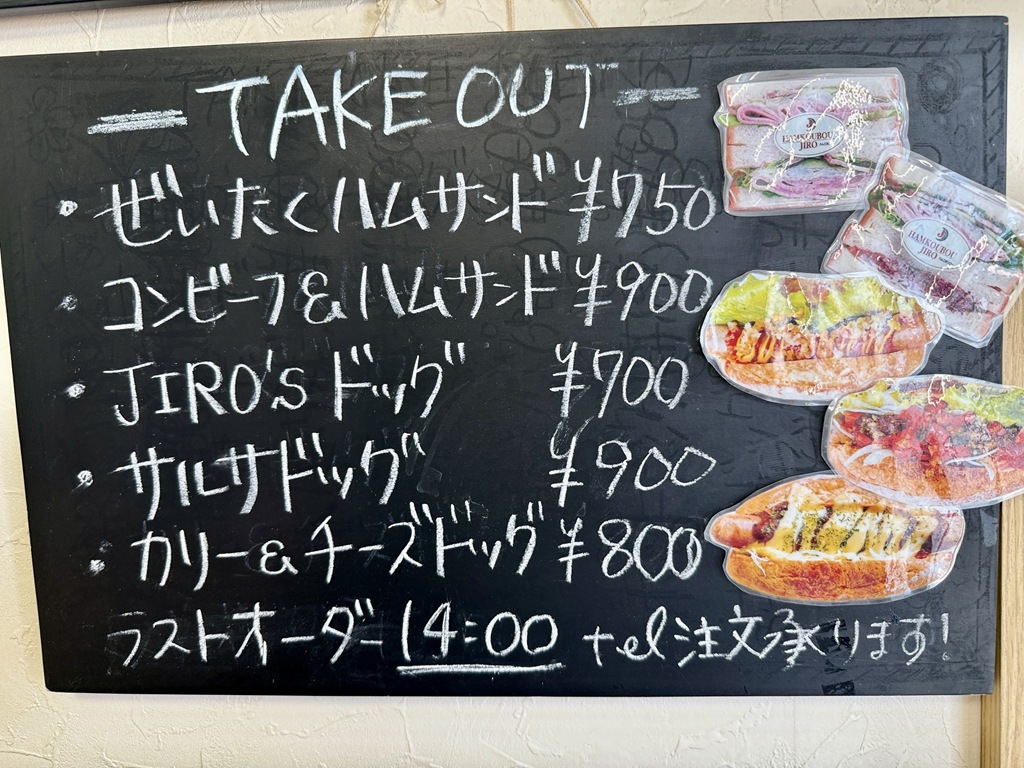 TAKE OUT
・ぜいたくハムサンド ¥750
・コンビーフ&ハムサンド ¥900
・JIRO'S ドッグ ¥700
・サルサドッグ ¥900
・カリー&チーズドッグ ¥800
ラストオーダー 14:00 tel注文承ります!
HAMKOUBOU
JIRO
HAMKOUBOU
JIRO